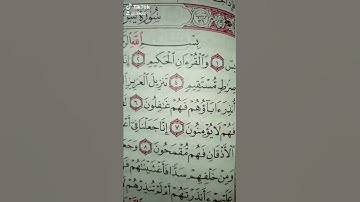 TikTok
سُورَةُ يسٓ
بِسْمِ اللَّهِ
يسٓ ۝١ وَالْقُرْءَانِ الْحَكِيمِ ۝٢
صِرَٰطٍ مُّسْتَقِيمٍ ۝٤ تَنزِيلَ الْعَزِيزِ
أُنذِرَ ءَابَآؤُهُمْ فَهُمْ غَٰفِلُونَ ۝٦
فَهُمْ لَا يُؤْمِنُونَ ۝٧ إِنَّا جَعَلْنَا فِىٓ
الْأَذْقَانِ فَهُم مُّقْمَحُونَ ۝٨ وَجَعَ
وَمِنْ خَلْفِهِمْ سَدًّا فَأَغْشَيْنَٰهُمْ
عَلَيْهِمْ ءَأَنذَرْتَهُمْ أَمْ لَمْ تُنذِرْهُمْ